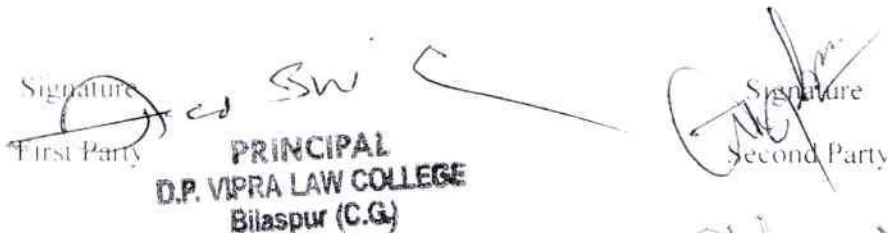 Signature
First Party
PRINCIPAL
D.P. VIPRA LAW COLLEGE
Bilaspur (C.G.)
Signature
Second Party